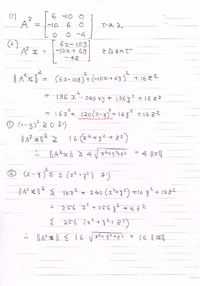 (1) A² = [6 -10 0
-10 6 0
0 0 -4] である.
(2) A²x = [6x-10y
-10x+6y
-4z] となるので
‖A²x‖² = (6x-10y)² + (-10x+6y)² + 16z²
= 136x² - 240xy + 136y² + 16z²
= 16x² + 120(x-y)² + 16y² + 16z²
① (x-y)² ≧ 0 より
‖A²x‖² ≧ 16(x²+y²+z²)
∴ ‖A²x‖ ≧ 4√x²+y²+z² = 4‖x‖
② (x-y)² ≦ 2(x²+y²) より
‖A²x‖² ≦ 16x² + 240(x²+y²) + 16y² + 16z²
= 256x² + 256y² + 16z²
≦ 256(x²+y²+z²)
∴ ‖A²x‖ ≦ 16√x²+y²+z² = 16‖x‖